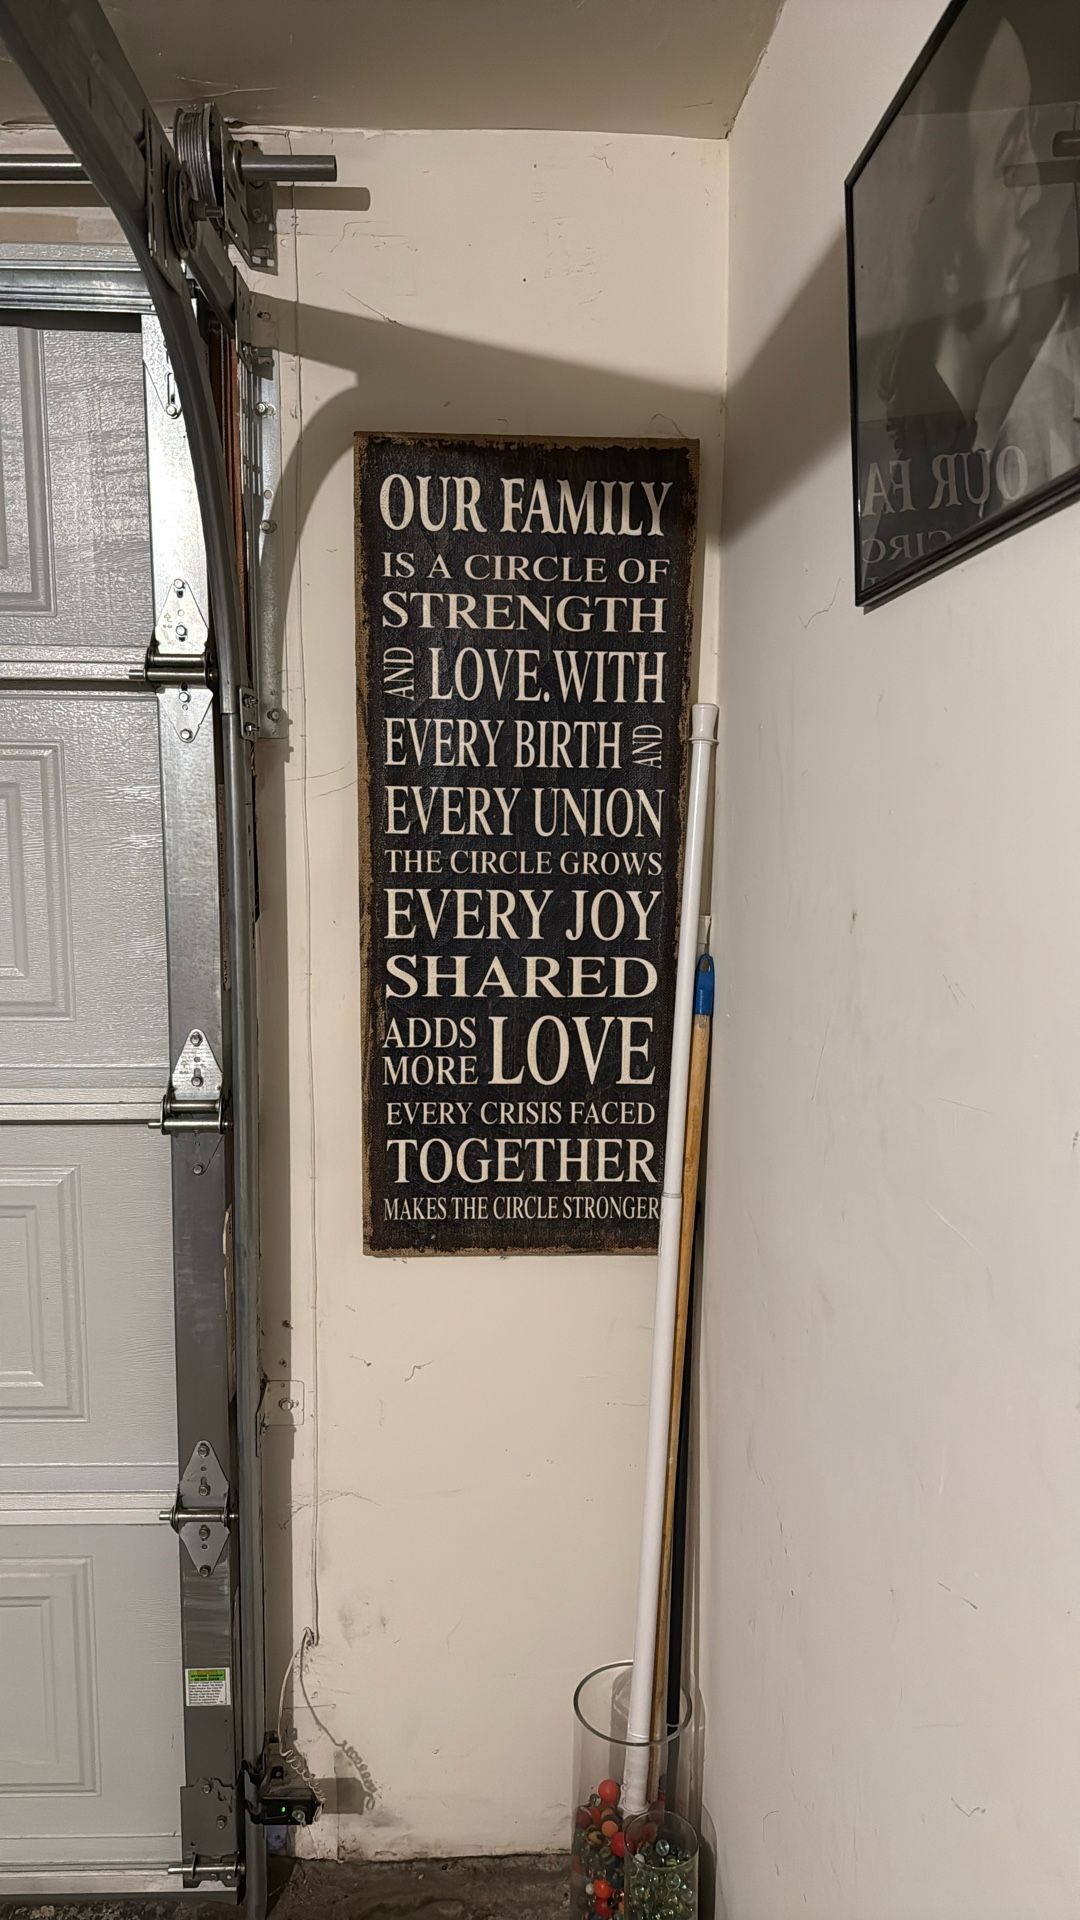 OUR FAMILY
IS A CIRCLE OF
STRENGTH
AND LOVE.WITH
EVERY BIRTH AND
EVERY UNION
THE CIRCLE GROWS
EVERY JOY
SHARED
ADDS
MORE LOVE
EVERY CRISIS FACED
TOGETHER
MAKES THE CIRCLE STRONGER